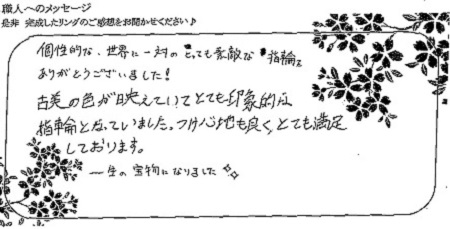 職人へのメッセージ
是非 完成したリングのご感想をお聞かせください♪
個性的な、世界に一対の とっても素敵な 指輪を
ありがとうございました！
古美の色が映えていてとても印象的な
指輪となっていました。つけ心地も良く、とても満足
しております。
一生の宝物になりました